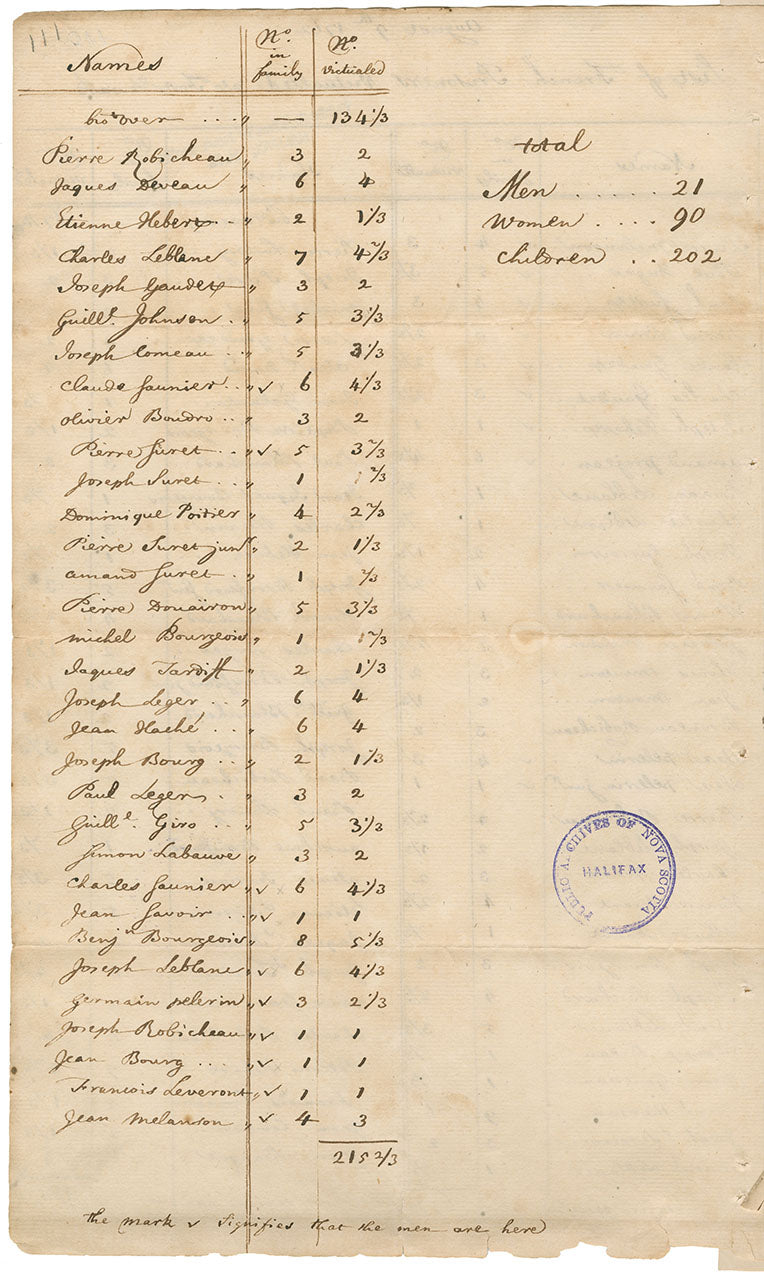 111
Names	No. in family	No. victualed
bro't over ... " — 134 1/3
Pierre Robicheau " 3 2
Jaques Deveau " 6 4
Etienne Hebert .. " 2 1 1/3
Charles Leblanc " 7 4 2/3
Joseph Gaudet " 3 2
Guill^e. Johnson . " 5 3 1/3
Joseph Comeau .. " 5 3 1/3
Claude Saunier .. " ✓ 6 4 1/3
Olivier Boudro .. " 3 2
Pierre Suret .. " ✓ 5 3 2/3
Joseph Suret .. " 1 2/3
Dominique Poitier " 4 2 2/3
Pierre Suret jun^r " 2 1 1/3
amand Suret . " 1 2/3
Pierre Douäiron " 5 3 1/3
michel Bourgeois " 1 2/3
Jaques Tardiff " 2 1 1/3
Joseph Leger .. " 6 4
Jean Haché .. " 6 4
Joseph Bourg .. " 2 1 1/3
Paul Leger . " 3 2
Guill^e. Giro .. " 5 3 1/3
Simon Labauve " 3 2
Charles Saunier " ✓ 6 4 1/3
Jean Savoir .. " ✓ 1 1
Benj^n Bourgeois " 8 5 1/3
Joseph Leblanc " ✓ 6 4 1/3
germain pelerin " ✓ 3 2 1/3
Joseph Robicheau " ✓ 1 1
Jean Bourg ... " ✓ 1 1
Francois Leveront " ✓ 1 1
Jean Melanson " ✓ 4 3
215 2/3
the mark ✓ Signifies that the men are here
total
Men ..... 21
Women .... 90
Children .. 202
PUBLIC ARCHIVES OF NOVA SCOTIA
HALIFAX